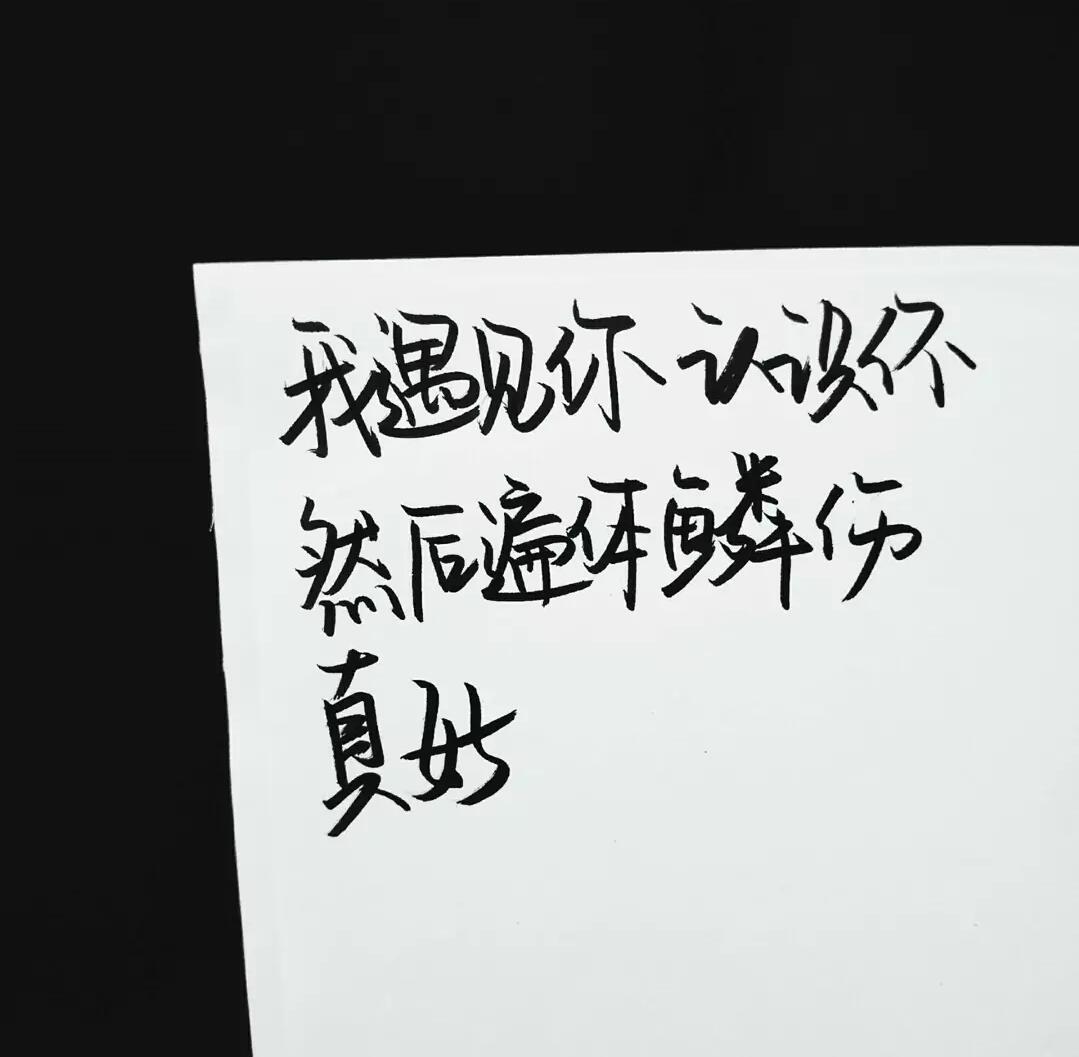 我遇见你 认识你
然后遍体鳞伤
真好